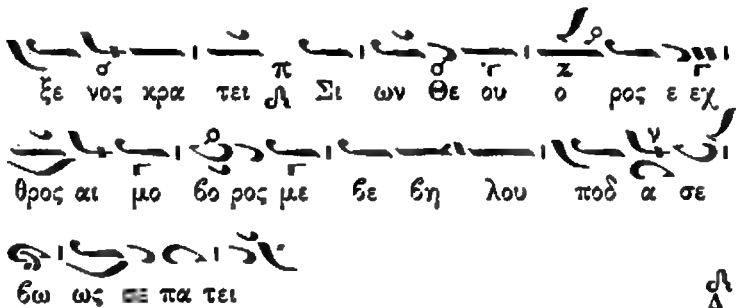 ξε νος κρα τει Σι ων Θε ου ο ρος ε εχ
θρος αι μο βο ρος με βε βη λου ποδ α σε
βω ως πα τει